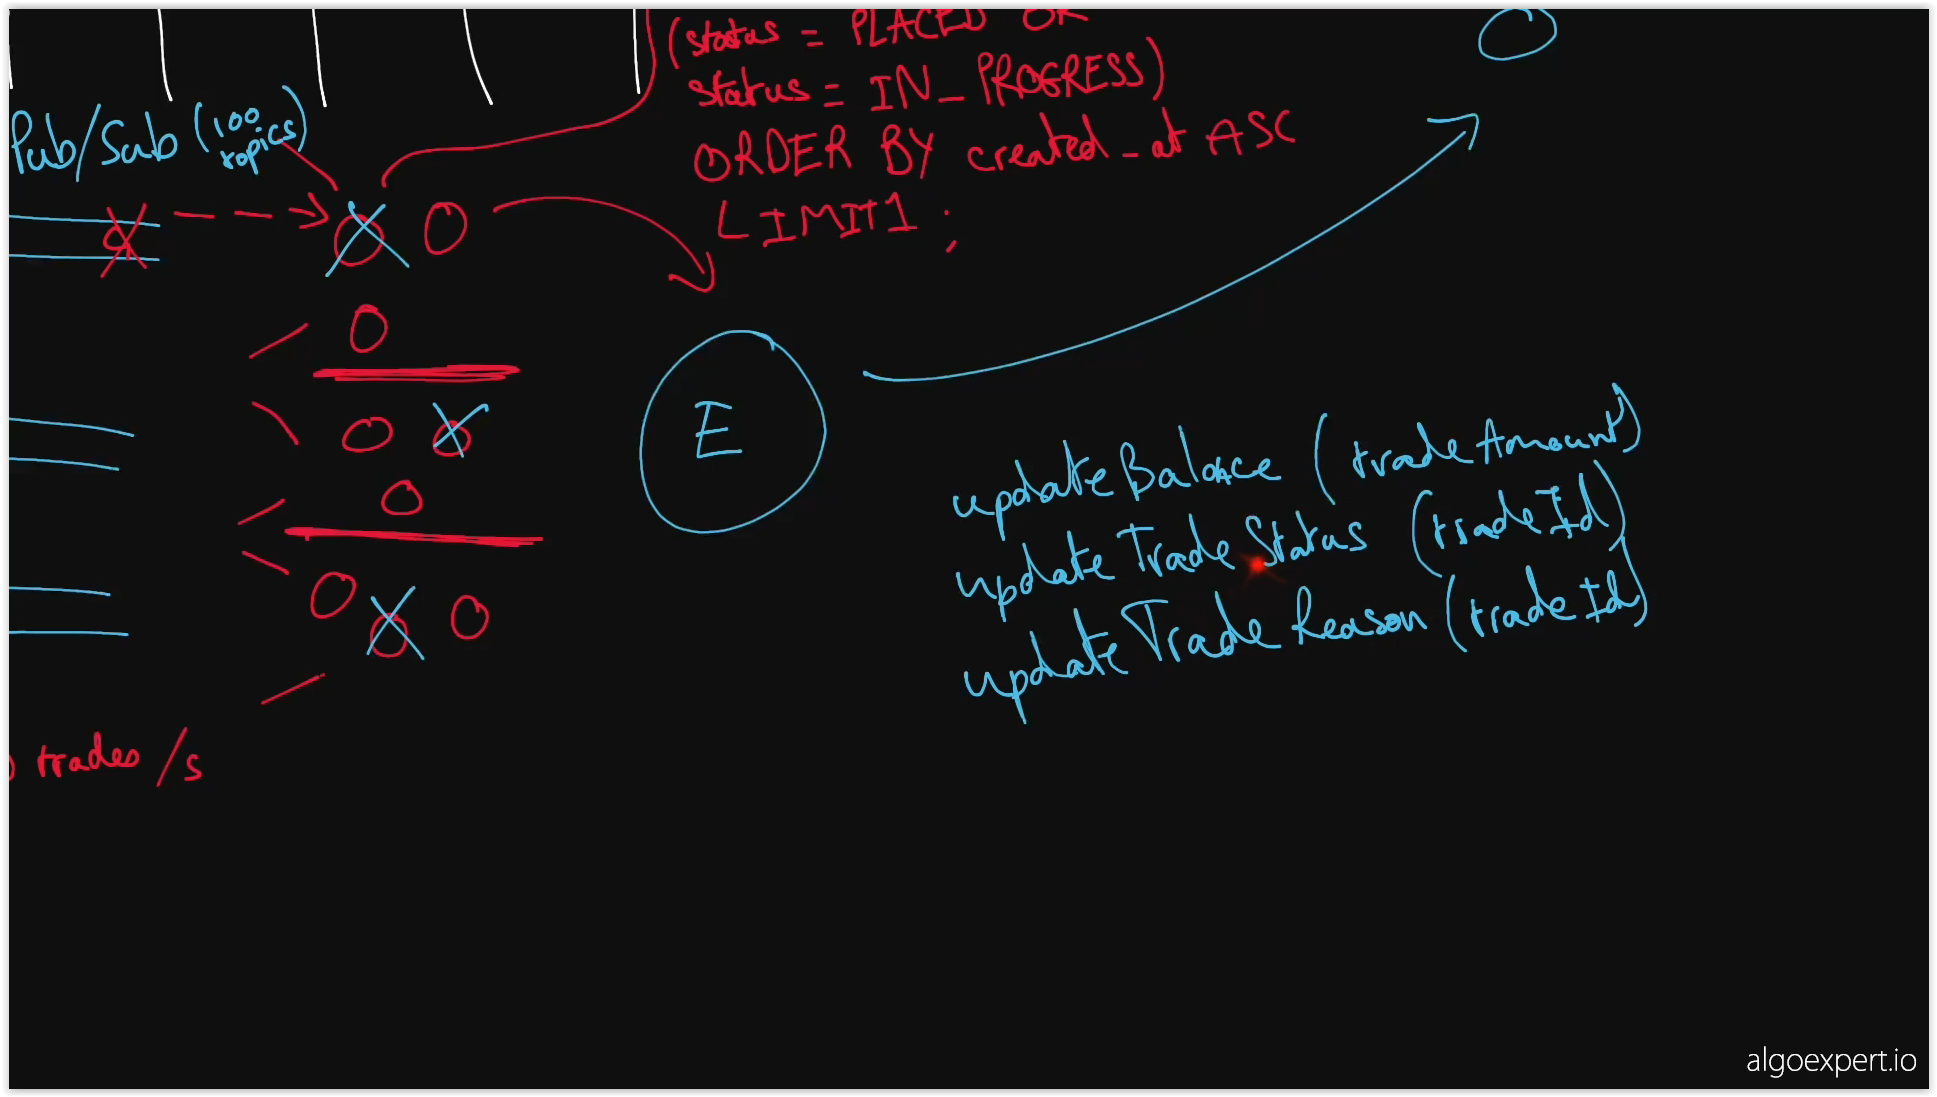 (status = PLACED OR
status = IN_PROGRESS)
ORDER BY created_at ASC
LIMIT 1;
Pub/Sub (100
topics)
E
updateBalance (tradeAmount)
updateTradeStatus (tradeId)
updateTradeReason (tradeId)
trades/s
algoexpert.io